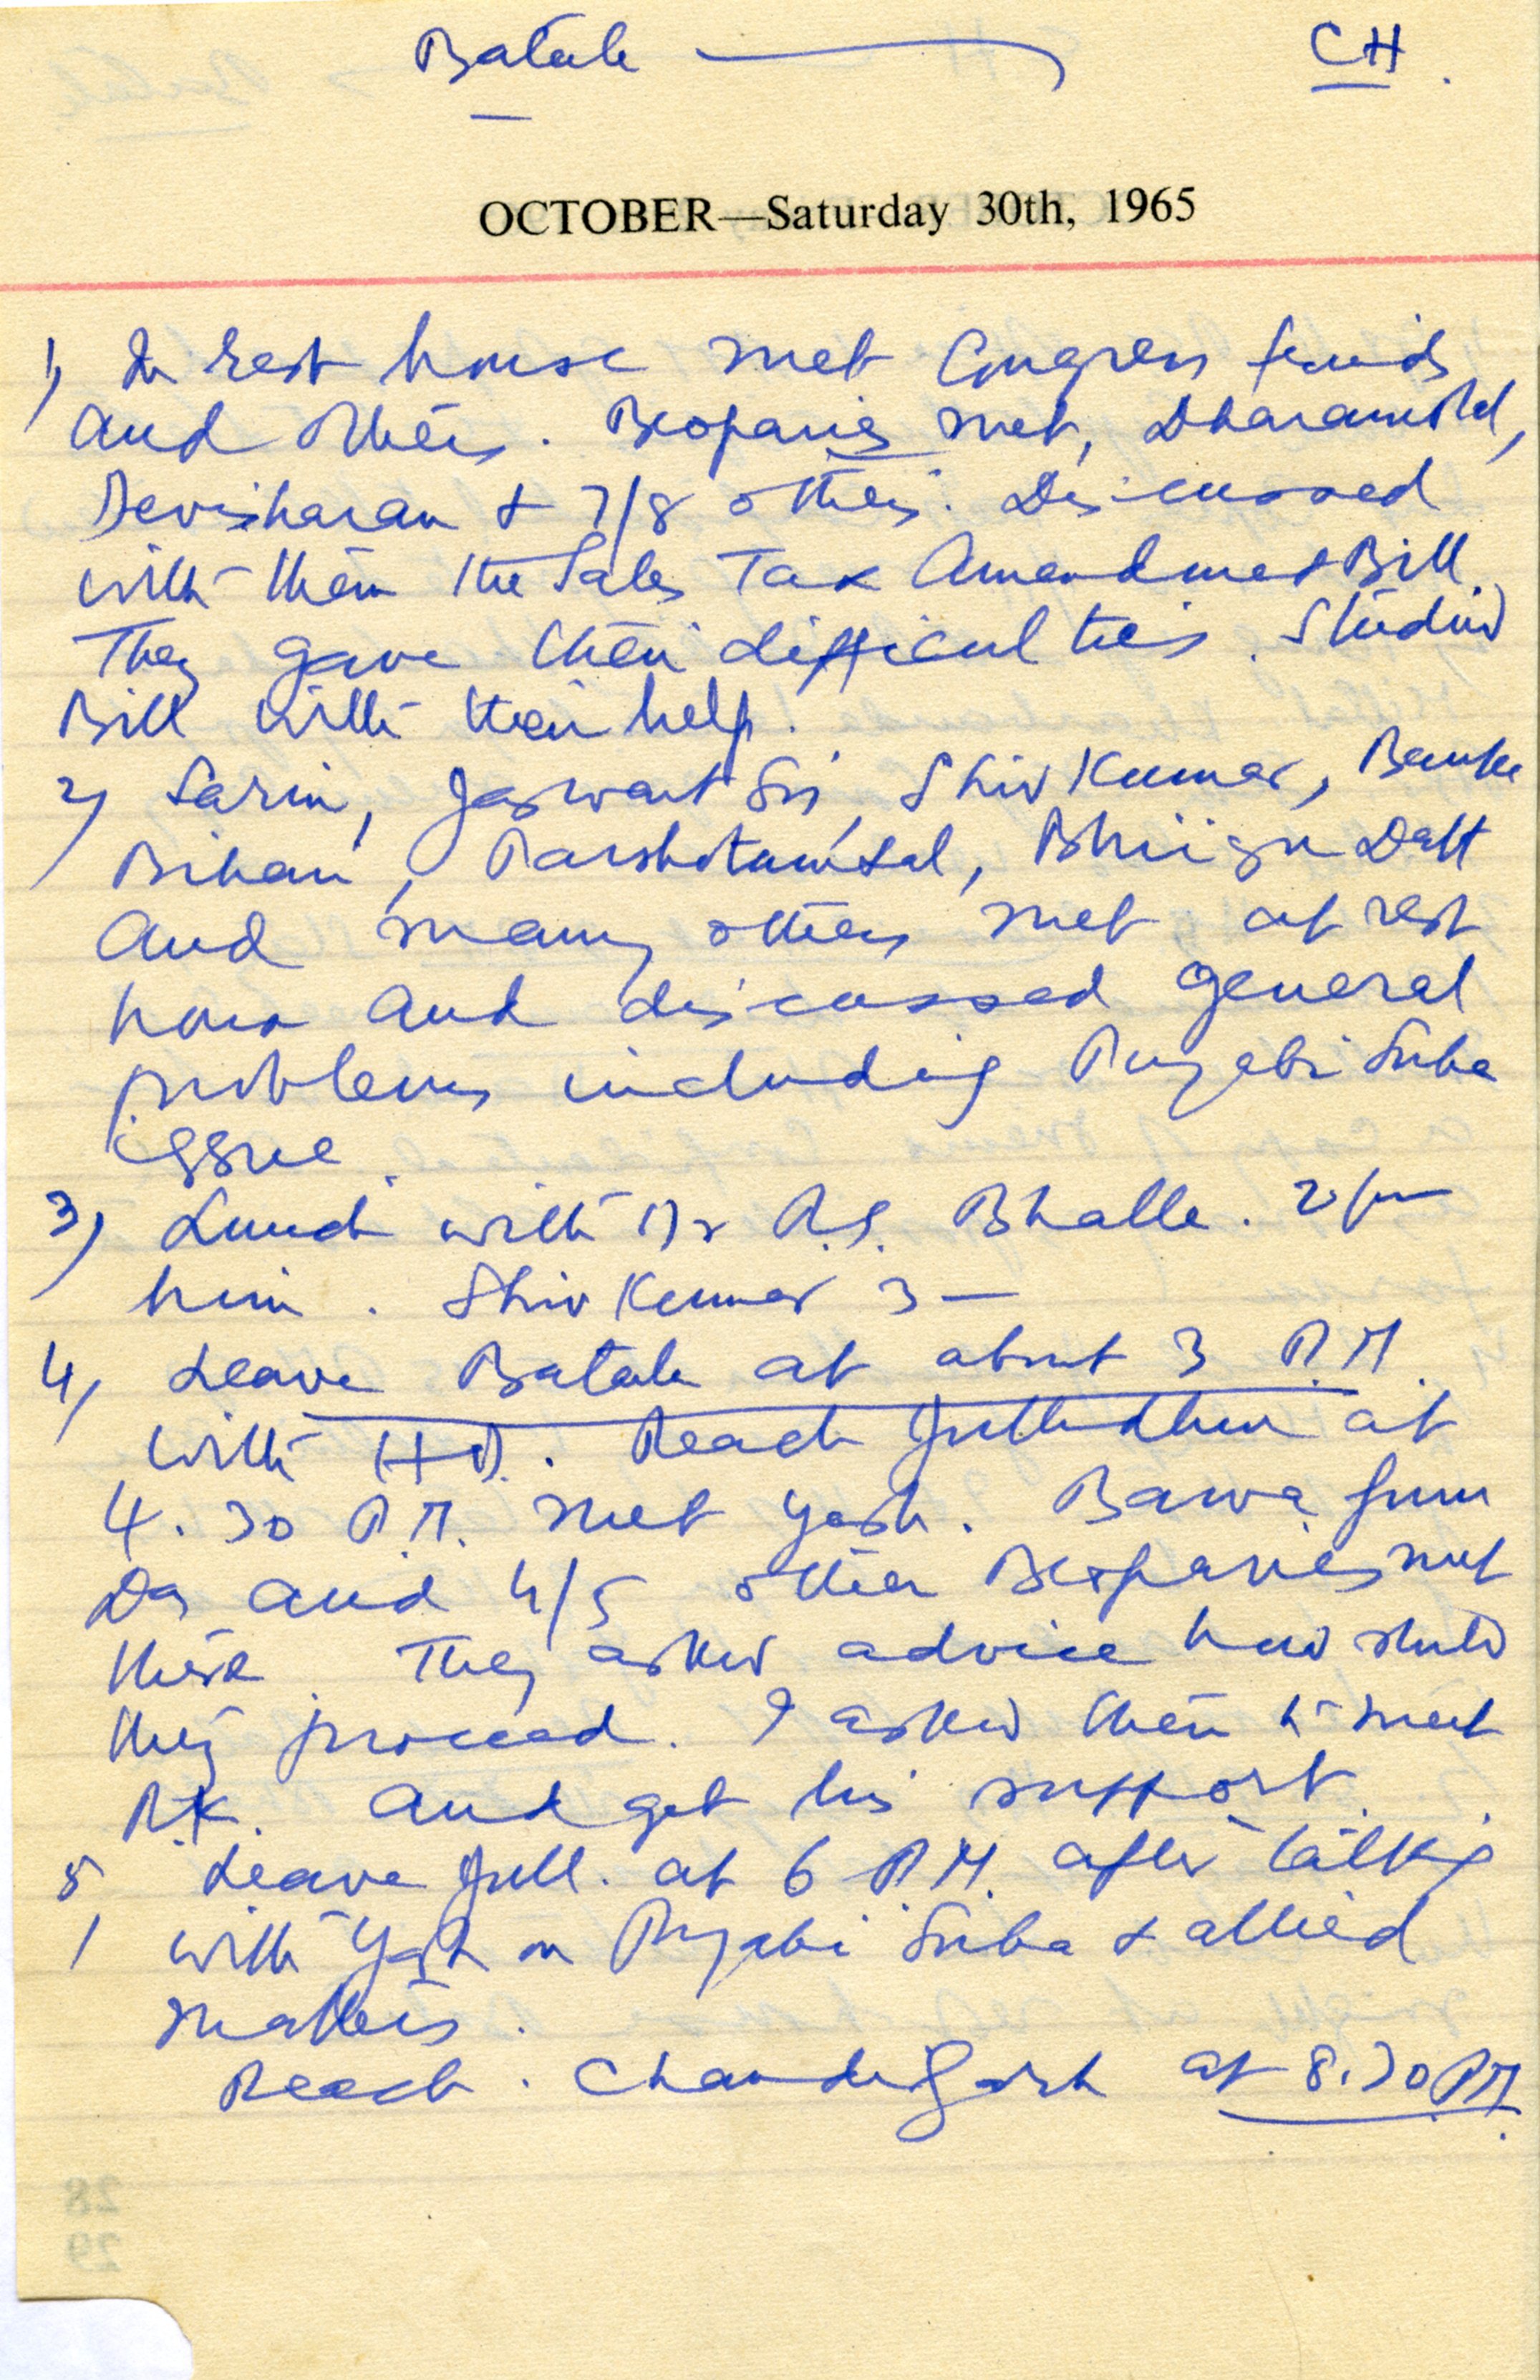 Batala CH.
OCTOBER—Saturday 30th, 1965
1) In rest house met Congress friends
and others. Beoparies met, Dharampal,
Devisharan & 7/8 others. Discussed
with them the Sales Tax Amendment Bill.
They gave their difficulties. Studied
Bill with their help.
2) Sarin, Jaswant Sin, Shiv Kumar, Banke
Bihari, Parshotam Lal, Bhrigu Datt
and many others met at rest
house and discussed general
problems including Punjabi Suba
issue.
3) Lunch with Dr Bhalla.
him. Shiv Kumar 3 —
4) Leave Batala at about 3 P.M.
with HD. Reach Jullundhur at
4.30 P.M. met Yash. Bawa Guru
Das and 4/5 other Beoparies met
there. They asked advice how should
they proceed. I asked them to meet
R.K. and get his support.
5) Leave Jull. at 6 P.M. after talking
with Yash on Punjabi Suba & allied
matters.
Reach. Chandigarh at 8.30 PM.